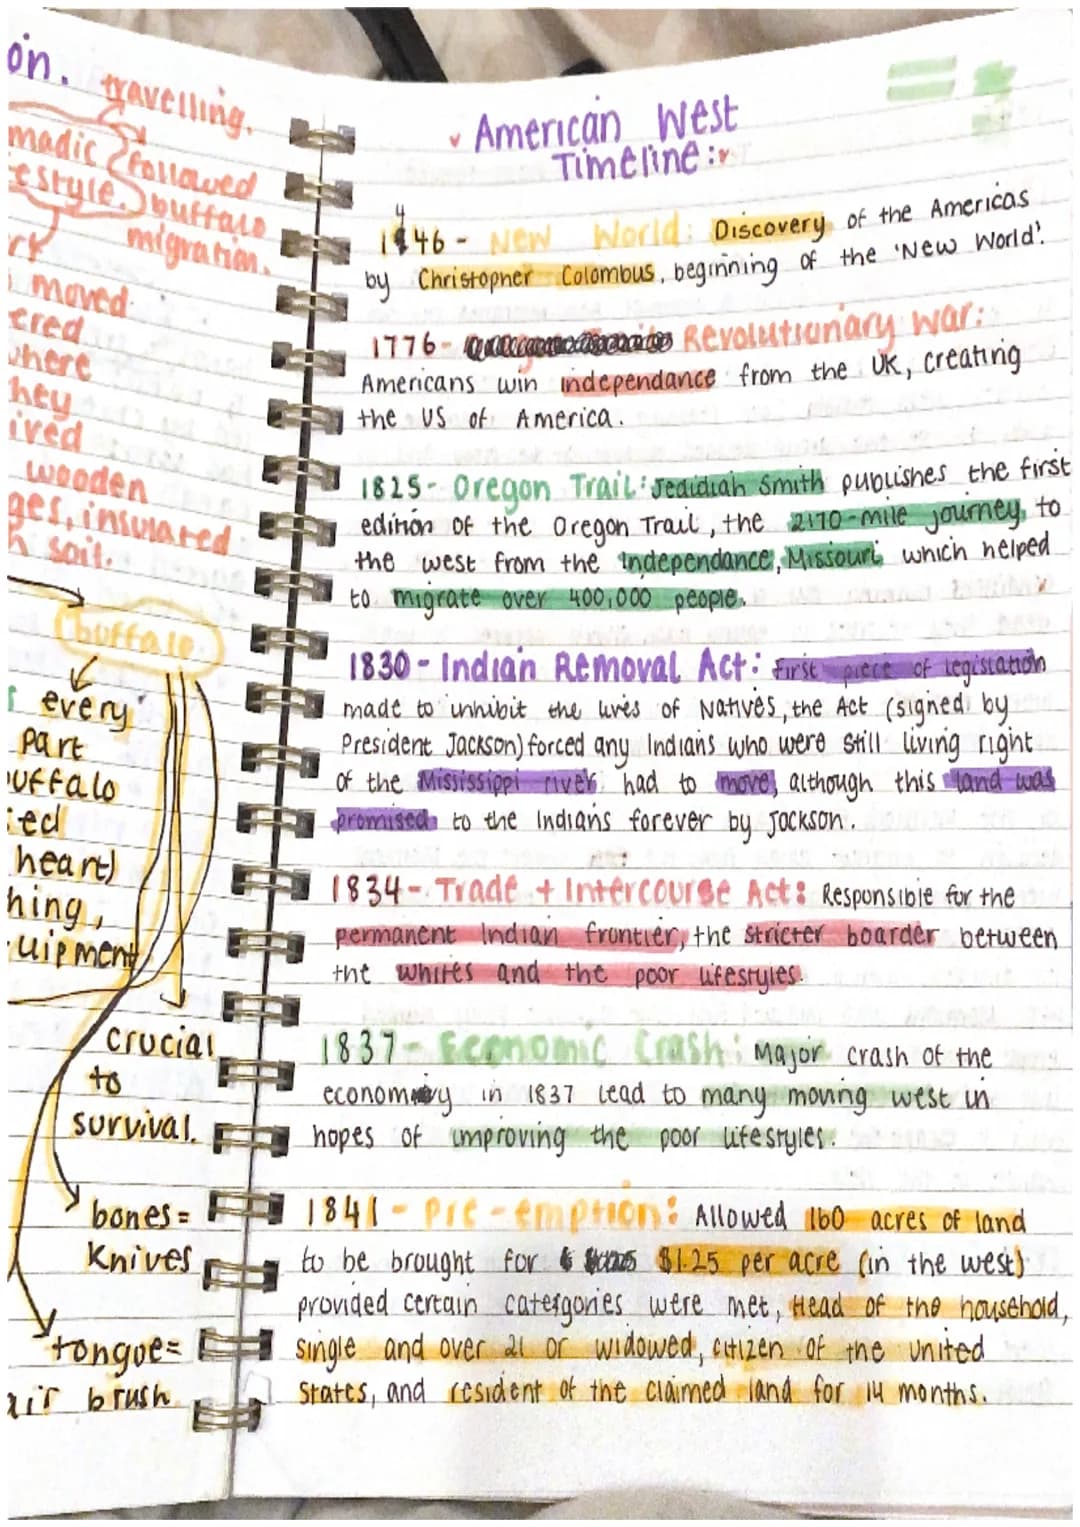 on.
travelling.
madic
estyle.
followed
buffalo
migration.
moved
ered
where
hey
ived
wooden
ges, insulated
h soil.
buffalo
every
part
uffalo
sed
heart)
hing,
uipment
crucial
to
survival.
bones =
knives
tongue =
air brush
American West
Timeline:
1446 - New World: Discovery of the Americas
by Christopher Colombus, beginning of the 'New World'.
1776 - Revolutionary War:
Americans win independance from the UK, creating
the US of America.
1825 - Oregon Trail: Jedidiah Smith publishes the first
edition of the Oregon Trail, the 2170-mile journey, to
the west from the Independance, Missouri which helped
to migrate over 400,000 people.
1830 - Indian Removal Act: First piece of legislation
made to inhibit the lives of Natives, the Act (signed by
President Jackson) forced any Indians who were still living right
of the Mississippi river had to move, although this land was
promised to the Indians forever by Jackson.
1834 - Trade + Intercourse Act: Responsible for the
permanent Indian frontier, the stricter boarder between
the whites and the poor lifestyles.
1837 - Economic Crash: Major crash of the
economy in 1837 lead to many moving west in
hopes of improving the poor lifestyles.
1841 - Pre-emption: Allowed 160 acres of land
to be brought for $1.25 per acre (in the west)
provided certain catergories were met, Head of the household,
single and over 21 or widowed, citizen of the united
states, and resident of the claimed land for 14 months.